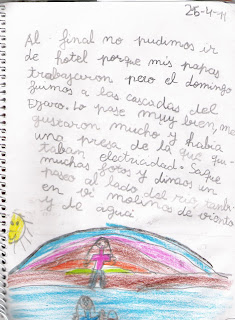 26-4-11
Al final no pudimos ir
de hotel porque mis papas
trabajaron pero el domingo
fuimos a las cascadas del
Ezaro. Lo pase muy bien, me
gustaron mucho y había
una presa de la que qui
taban electricidad. Saque
muchas fotos y dimos un
paseo al lado del río, tanbi
en vi molinos de viento
y de agua